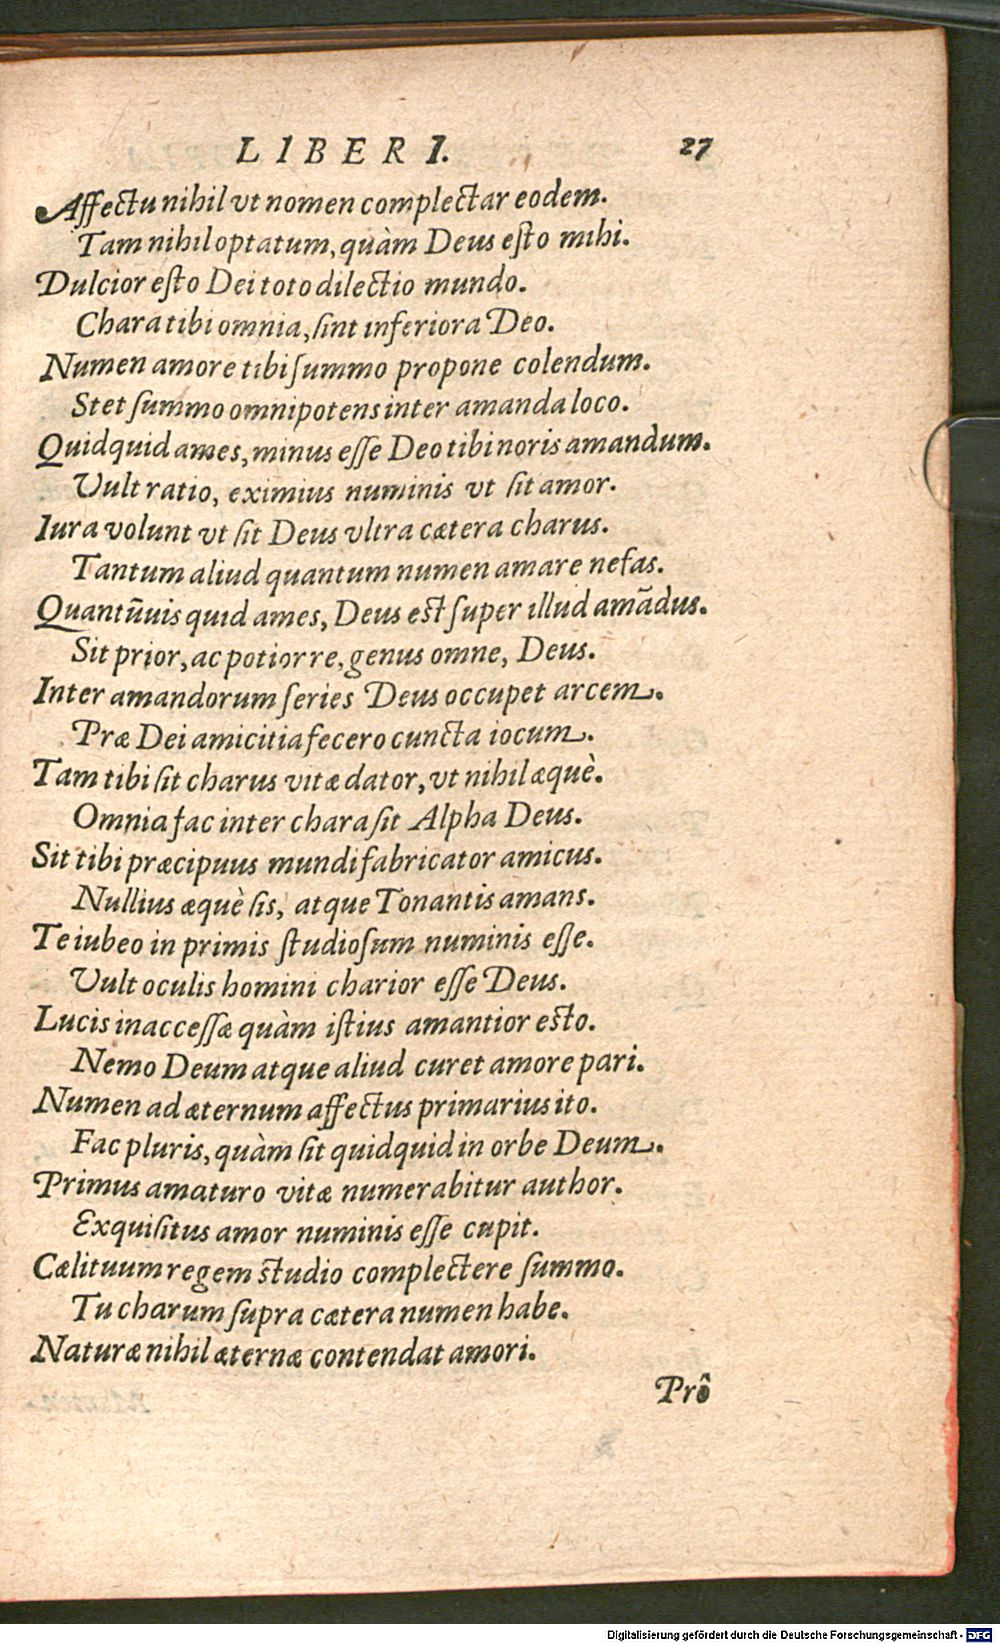 LIBER I. 27
Affectu nihil vt nomen complectar eodem.
Tam nihil optatum, quàm Deus eſto mihi.
Dulcior eſto Dei toto dilectio mundo.
Chara tibi omnia, ſint inferiora Deo.
Numen amore tibi ſummo propone colendum.
Stet ſummo omnipotens inter amanda loco.
Quidquid ames, minus eſſe Deo tibi noris amandum.
Vult ratio, eximius numinis vt ſit amor.
Iura volunt vt ſit Deus vltra cætera charus.
Tantum aliud quantum numen amare nefas.
Quantũuis quid ames, Deus eſt ſuper illud amãdus.
Sit prior, ac potior re, genus omne, Deus.
Inter amandorum ſeries Deus occupet arcem.
Præ Dei amicitia fecero cuncta iocum.
Tam tibi ſit charus vitæ dator, vt nihil æquè.
Omnia fac inter chara ſit Alpha Deus.
Sit tibi præcipuus mundi fabricator amicus.
Nullius æquè ſis, atque Tonantis amans.
Te iubeo in primis ſtudioſum numinis eſſe.
Vult oculis homini charior eſſe Deus.
Lucis inacceſſæ quàm iſtius amantior eſto.
Nemo Deum atque aliud curet amore pari.
Numen ad æternum affectus primarius ito.
Fac pluris, quàm ſit quidquid in orbe Deum.
Primus amaturo vitæ numerabitur author.
Exquiſitus amor numinis eſſe cupit.
Cælituum regem ſtudio complectere ſummo.
Tu charum ſupra cætera numen habe.
Naturæ nihil æternæ contendat amori.
Prô
Digitalisierung gefördert durch die Deutsche Forschungsgemeinschaft - DFG